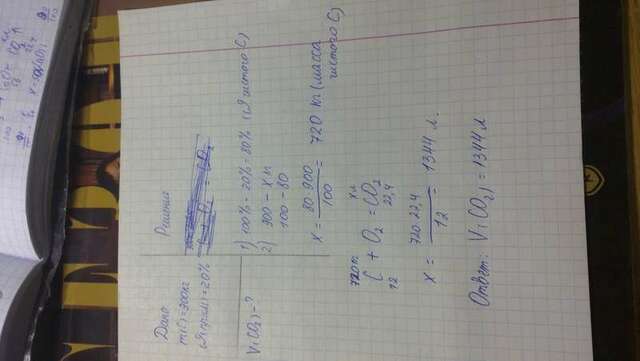 Дано
m(C)=900кг
ω(прим)=20%
V(CO₂)-?
Решение
1) 100% - 20% = 80% (ω чистого C)
2) 900 - x кг
100 - 80
x = 80·900 / 100 = 720 кг (масса чистого C)
720 x л
C + O₂ = CO₂
12 22,4
x = 720·22,4 / 12 = 1344 л.
Ответ: V(CO₂) = 1344 л